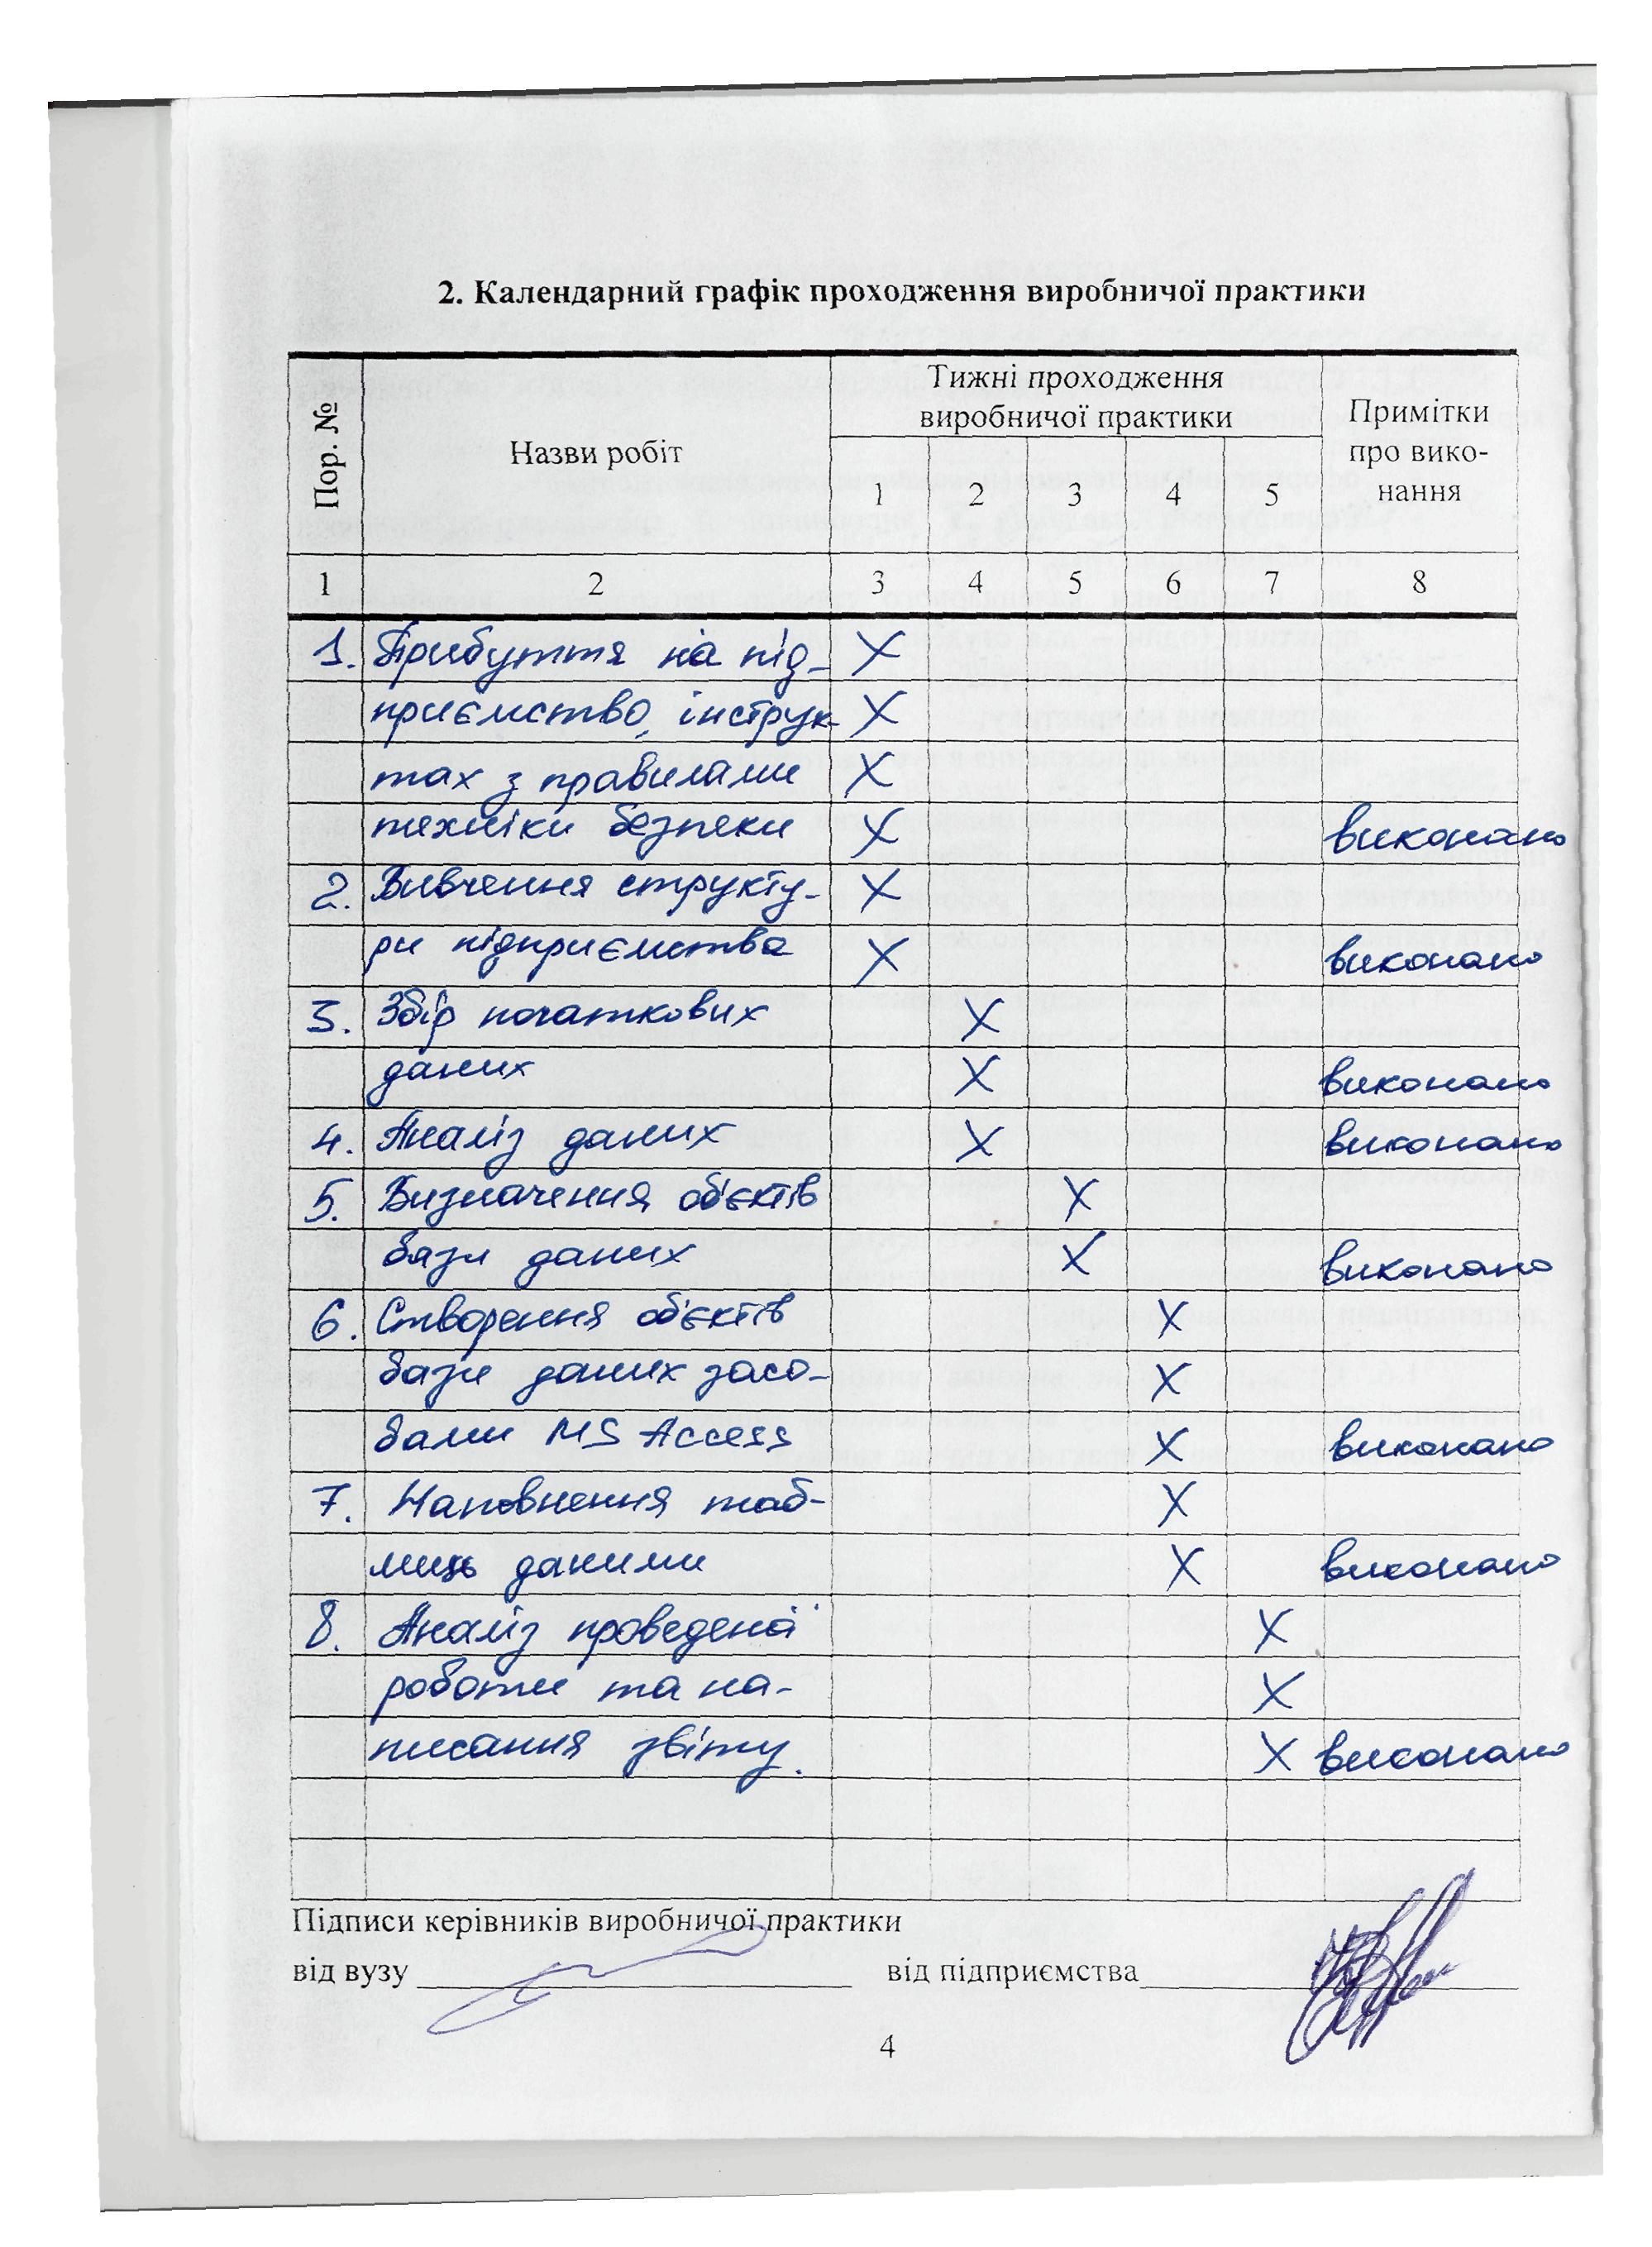 2. Календарний графік проходження виробничої практики
Пор. № Назви робіт Тижні проходження виробничої практики Примітки про вико-нання
1 2 3 4 5
1 2 3 4 5 6 7 8
1. Прибуття на під- X
приємство, інструк- X
таж з правилами X
техніки безпеки X виконано
2. Вивчення структу- X
ри підприємства X виконано
3. Збір початкових X
даних X виконано
4. Аналіз даних X виконано
5. Визначення об'єктів X
бази даних X виконано
6. Створення об'єктів X
бази даних засо- X
бами MS Access X виконано
7. Наповнення таб- X
лиць даними X виконано
8. Аналіз проведеної X
роботи та на- X
писання звіту. X виконано
Підписи керівників виробничої практики
від вузу від підприємства
4